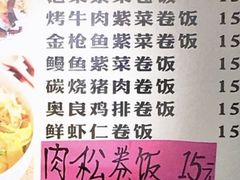 烤牛肉紫菜卷饭 15
金枪鱼紫菜卷饭 15
鳗鱼紫菜卷饭 15
碳烧猪肉卷饭 15
奥良鸡排卷饭 15
鲜虾仁卷饭 15
肉松券饭 15元